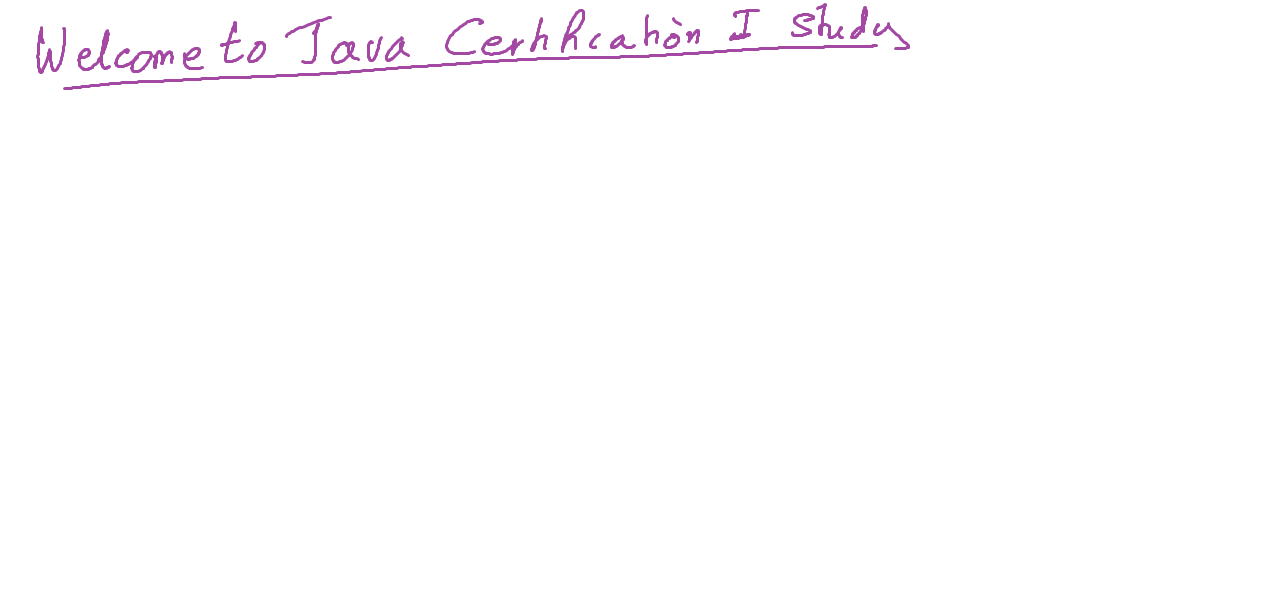 Welcome to Java Certification I study